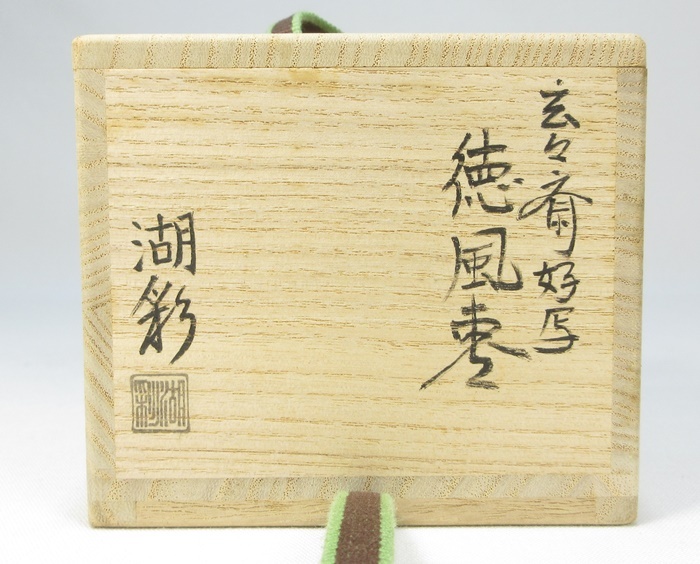 玄々斎好写
徳風棗
湖彩
湖彩